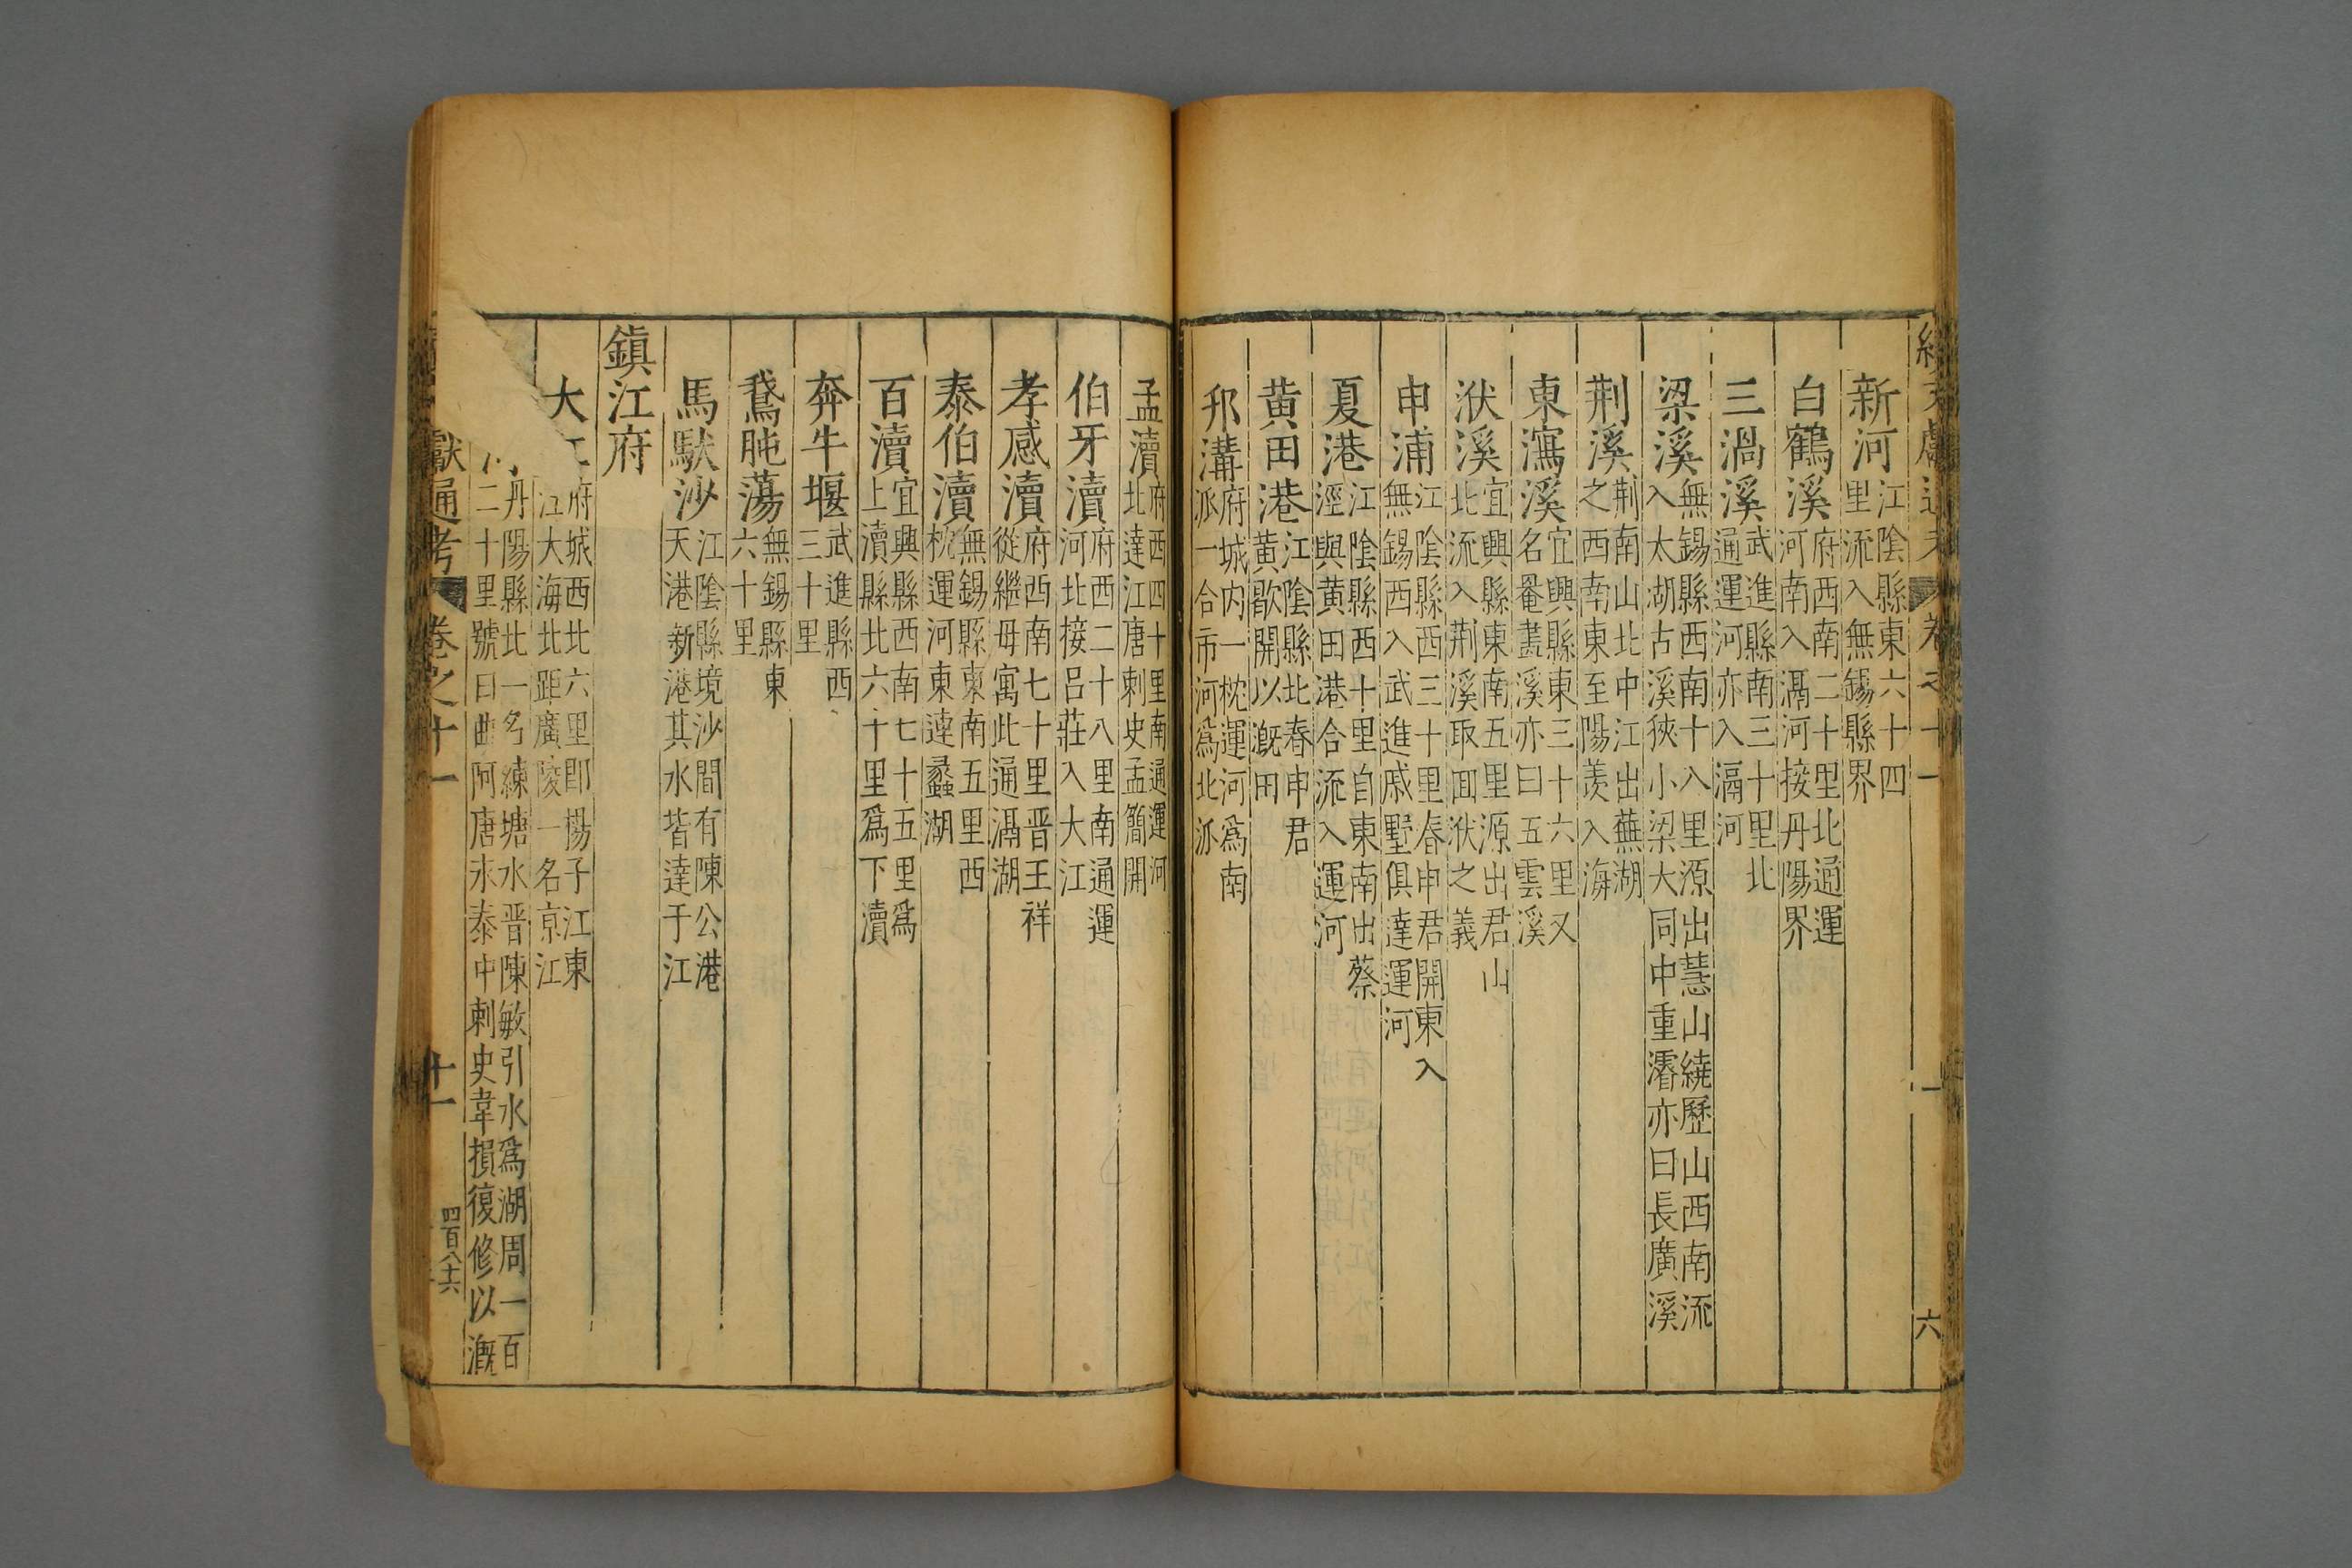 新河江陰縣東六十四
里流入無錫縣界
白鶴溪府西南二十里北通運
河南入滆河接丹陽界
三渦溪武進縣南三十里北
通運河亦入滆河
梁溪無錫縣西南十八里源出慧山繞歷山西南流
入太湖古溪狹小梁大同中重濬亦曰長廣溪
荆溪荆南山北中江出蕪湖
之西南東至陽羡入海
東瀉溪宜興縣東三十六里又
名罨畫溪亦曰五雲溪
洑溪宜興縣東南五里源出君山
北流入荆溪取囬洑之義
申浦江陰縣西三十里春申君開東入
無錫西入武進戚墅俱達運河
夏港江陰縣西十里自東南出蔡
涇與黄田港合流入運河
黄田港江陰縣北春申君
黄歇開以溉田
邗溝府城内一枕運河爲南
派一合市河爲北派
孟瀆府西四十里南通運河
北達江唐刺史孟簡開
伯牙瀆府西二十八里南通運
河北接呂莊入大江
孝感瀆府西南七十里晋王祥
從繼母寓此通滆湖
泰伯瀆無錫縣東南五里西
枕運河東達蠡湖
百瀆宜興縣西南七十五里爲
上瀆縣北六十里爲下瀆
奔牛堰武進縣西
三十里
鵞肫蕩無錫縣東
六十里
馬馱沙江陰縣境沙間有陳公港
天港新港其水皆達于江
鎮江府
大江府城西北六里郎楊子江東
江大海北距廣陵一名京江
丹陽縣北一名練塘水晋陳敏引水爲湖周一百
二十里號曰曲阿唐永泰中刺史韋損復修以溉
獻通考 卷之十一 十一 四百八十六